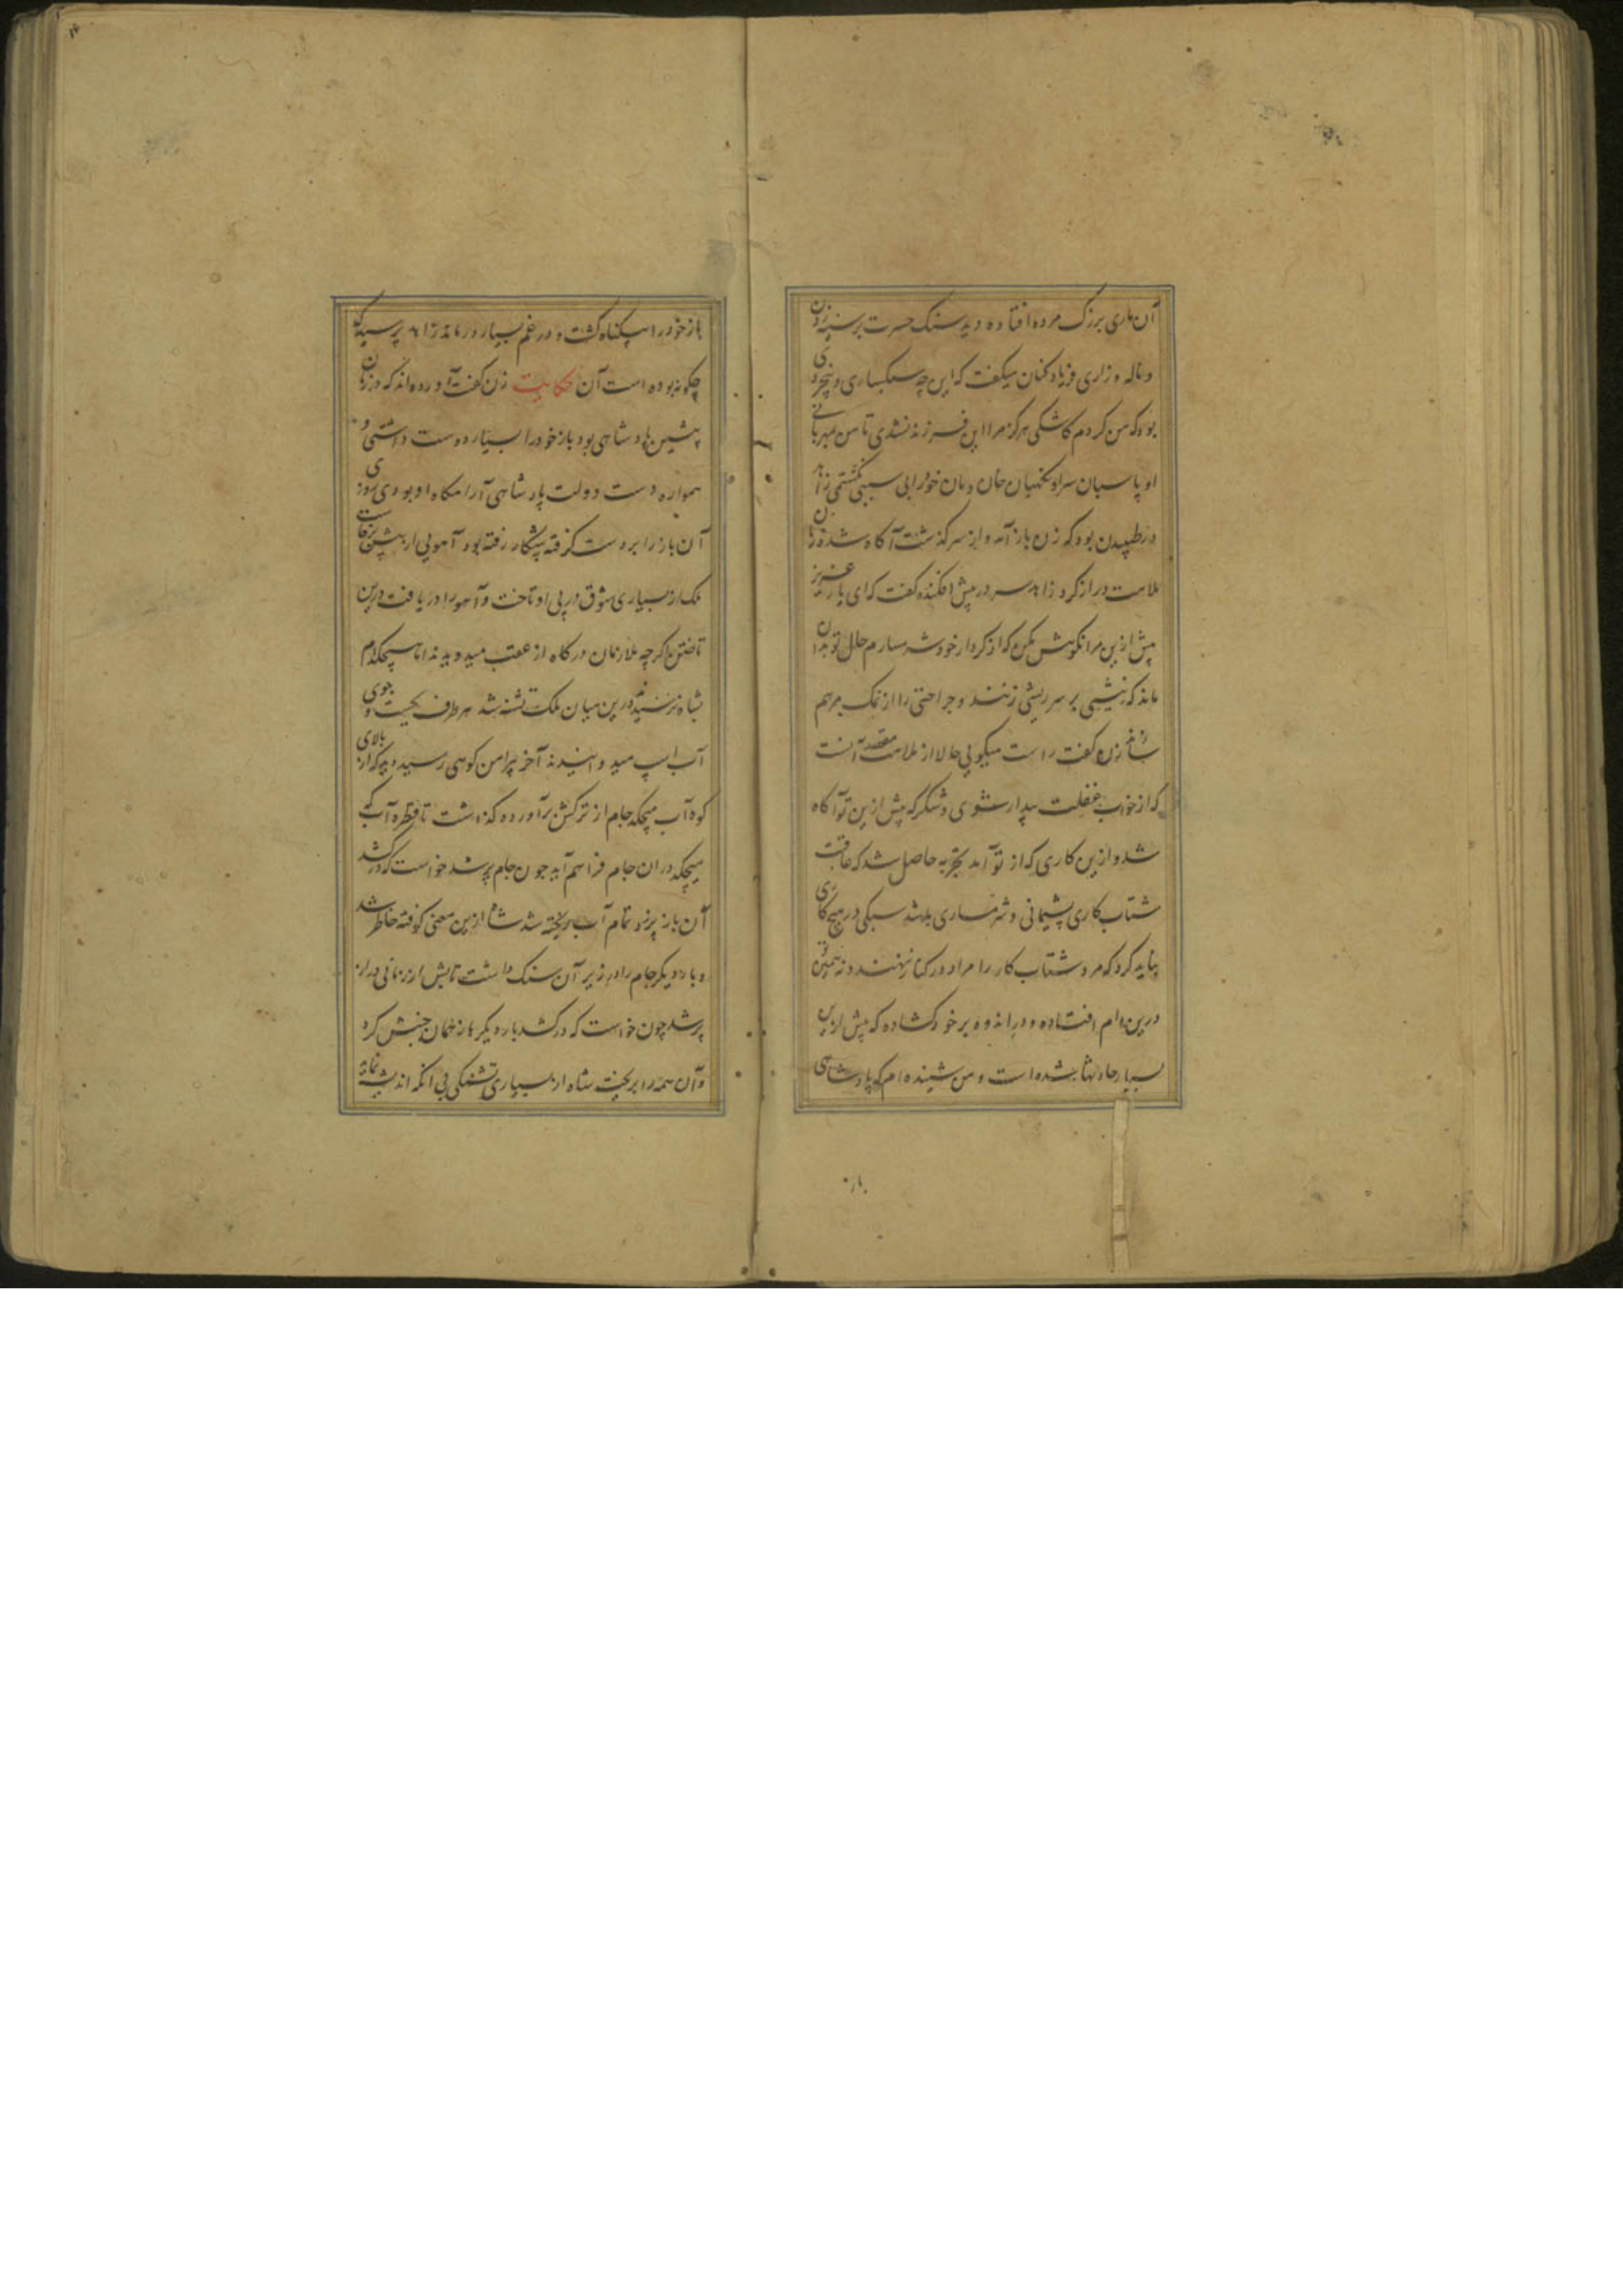 آن ماری بزرک مرده افتاده دید سنک حسرت بر سینه زدن
و ناله و زاری و فریاد کنان میکفت که این چه سبکساری و بیخردی
بود که من کردم کاشکی هرکز مرا این فرزند نشدی تا من بمهربانی
او پاسبان سرا و نکهبان خان و مان خود را بی سببی نکشتمی زاهد
در طپیدن بود که زن باز آمد و از سرکذشت آکاه شده زبان
ملامت دراز کرد زاهد سر در پیش افکنده کفت که ای یار عزیز
پیش ازین مرا نکوهش مکن که از کردار خود شرمسارم حال تو بدان
ماند که نیشی بر سر ریشی زنند و جراحتی را از نمک مرهم
سازند زن کفت راست میکویی حالا از ملامت مقصد آنست
که از خواب غفلت بیدار شوی و شکر که پیش ازین تو آکاه
شد و ازین کاری که از تو آمد تجربه حاصل شد که عاقبت
شتاب کاری پشیمانی و شرمساری باشد سبکی در هیچ کاری
نباید کرد که مرد شتاب کار را مراد در کنار ننهند و نه همین تو
درین دام افتاده و در اندوه بر خود کشاده که پیش ازین
بسیار حادثها شده است و من شنیده ام که پادشاهی
باز
باز خود را بیکناه کشت و در غم بسیار درماند زاهد پرسید که
چکونه بوده است آن حکایت زن کفت آورده اند که در زمان
پیشین پادشاهی بود باز خود را بسیار دوست داشتی و
همواره دست دولت پادشاهی آرامکاه او بودی روزی
آن باز را بر دست کرفته بشکار رفته بود آهویی از پیش برخاست
ملک از بسیاری شوق در پی او تاخت و آهو را در یافت درین
تاختن اکرچه ملازمان درکاه از عقب میدویدند اما هیچکدام
بشاه نرسیدند درین میان ملک تشنه شد هر طرف بجست و جوی
آب اسپ میدوانید تا آخر پیرامن کوهی رسید دید که از بالای
کوه آب میچکد جام از ترکش برآورده کذاشت تا قطره آب که
میچکد در ان جام فراهم آید چون جام پر شد خواست که درکشد
آن باز پر زد تمام آب ریخته شد شاه ازین معنی کوفته خاطر شد
و بار دیکر جام را در زیر آن سنک داشت تا پس از زمانی دراز
پر شد چون خواست که درکشد بار دیکر باز همان جنبش کرد
و آن همه را بریخت شاه از بسیاری تشنکی بی آنکه اندیشه نماید